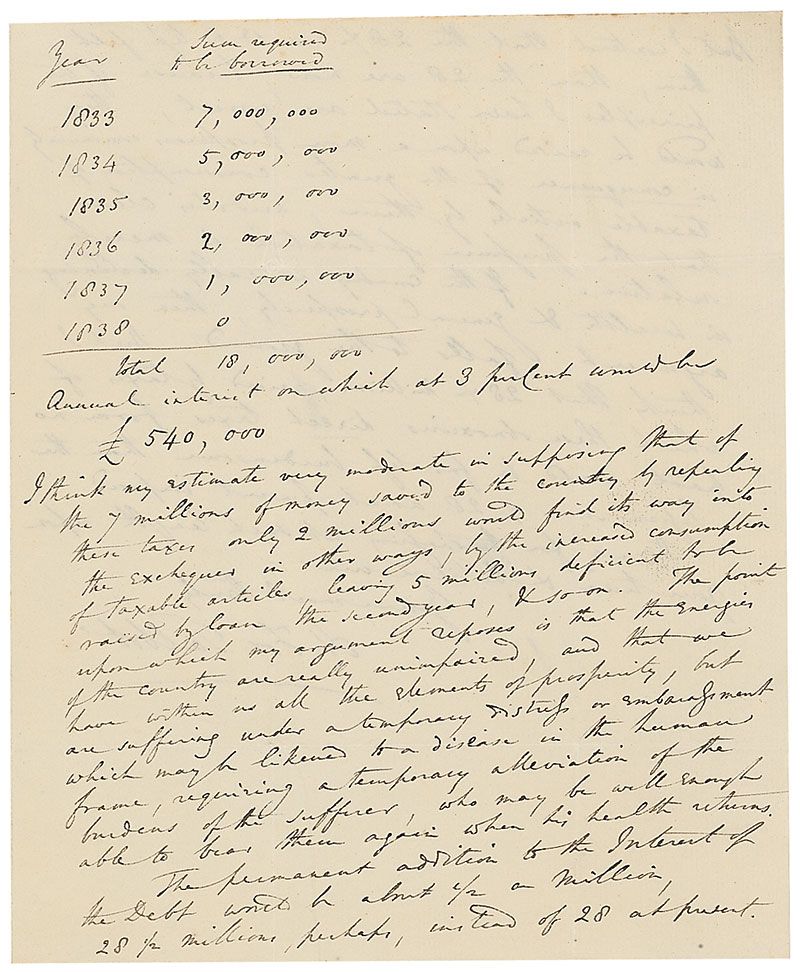 Year Sum required
to be borrowed
1833 7,000,000
1834 5,000,000
1835 3,000,000
1836 2,000,000
1837 1,000,000
1838 0
total 18,000,000
Annual interest on which at 3 per Cent would be
£ 540,000
I think my estimate very moderate in supposing that of
the 7 millions of money saved to the country by repealing
these taxes only 2 millions would find its way into
the exchequer in other ways, by the increased consumption
of taxable articles leaving 5 millions deficient to be
raised by loan the second year, & so on. The point
upon which my argument reposes is that the Energies
of the country are really unimpaired, and that we
have within us all the elements of prosperity, but
are suffering under a temporary distress or embarassment
which may be likened to a disease in the human
frame, requiring a temporary alleviation of the
burdens of the sufferer, who may be well enough
able to bear them again when his health returns.
The permanent addition to the Interest of
the Debt would be about 1/2 a Million,
28 1/2 millions, perhaps, instead of 28 at present.